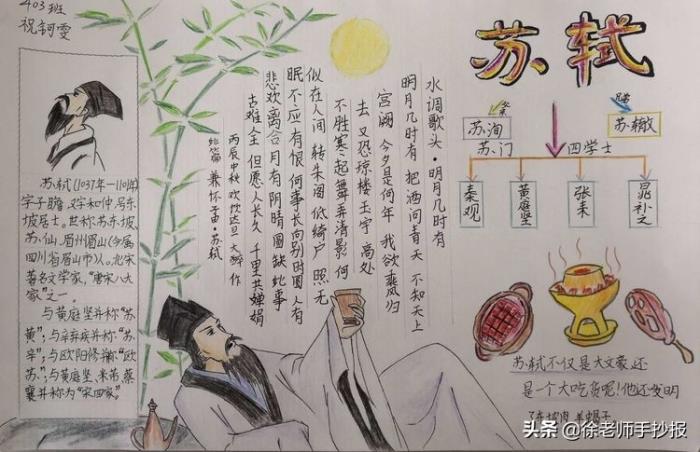 403班
祝钶雯
苏轼(1037年—1101年)
字子瞻,又字和仲,号东
坡居士。世称苏东坡、
苏仙,眉州眉山(今属
四川省眉山市)人。北宋
著名文学家,“唐宋八大
家”之一。
与黄庭坚并称“苏
黄”;与辛弃疾并称“苏
辛”;与欧阳修并称“欧
苏”;与黄庭坚、米芾、蔡
襄并称为“宋四家”。
水调歌头·明月几时有
明月几时有 把酒问青天 不知天上
宫阙 今夕是何年 我欲乘风归
去 又恐琼楼玉宇 高处
不胜寒 起舞弄清影 何
似在人间 转朱阁 低绮户 照无
眠 不应有恨 何事长向别时圆 人有
悲欢离合 月有阴晴圆缺 此事
古难全 但愿人长久 千里共婵娟
丙辰中秋 欢饮达旦 大醉 作
此篇 兼怀子由·苏轼
苏轼
苏洵
苏辙
苏门 四学士
秦观
黄庭坚
张耒
晁补之
苏轼不仅是大文豪,还
是一个大吃货呢!他还发明
了东坡肉
头条 @徐老师手抄报